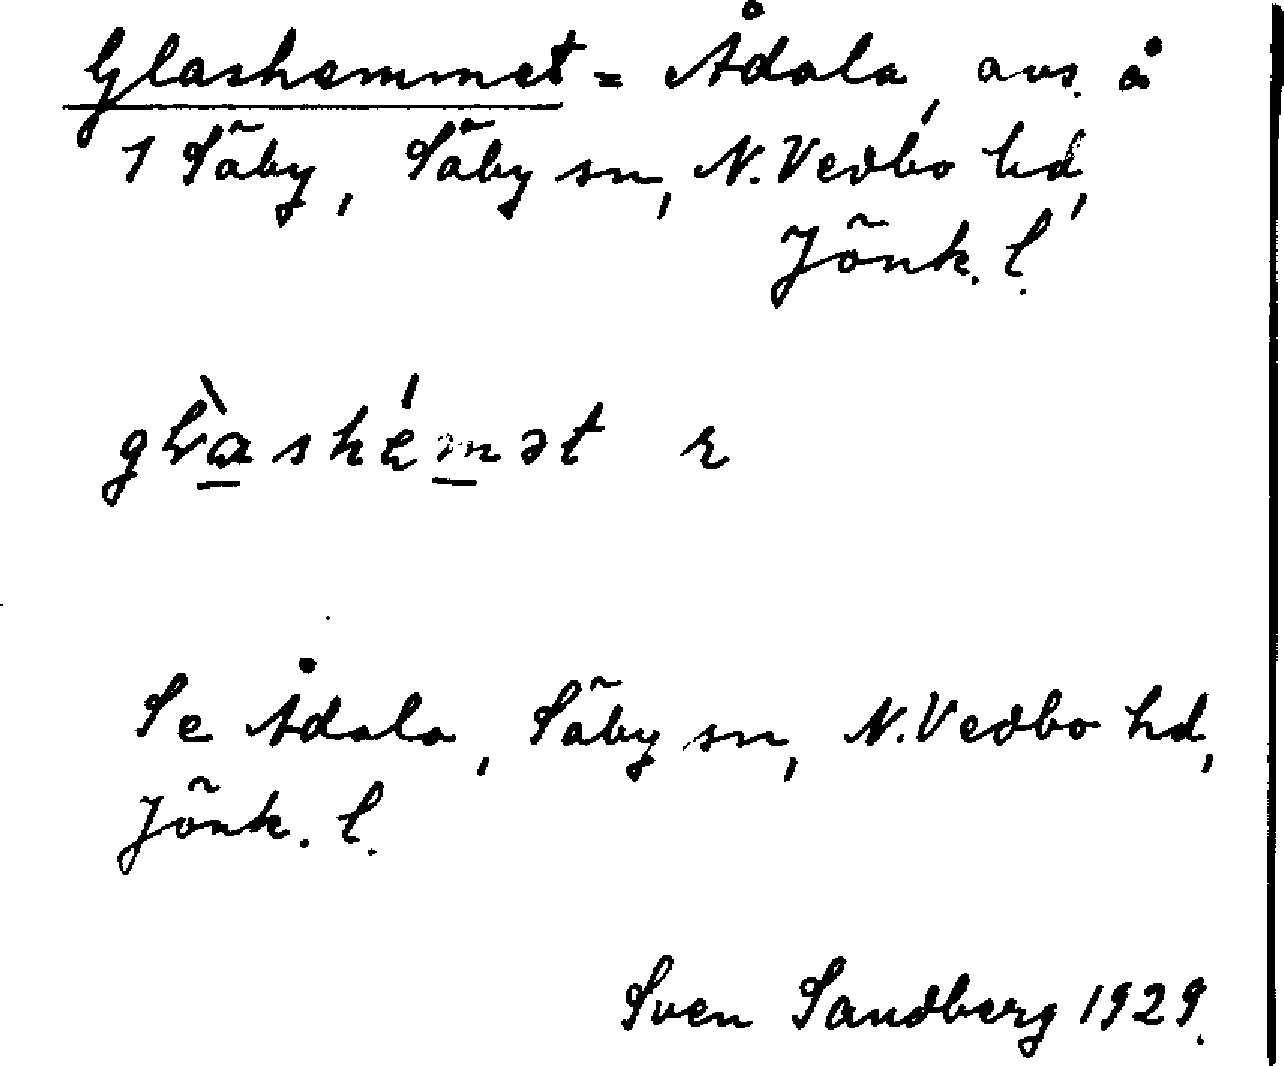 Glashemmet = Ådala, avs. å
1 Säby, Säby sn, N. Vedbo hd,
Jönk. l.
glàshémət r
Se Ådala, Säby sn, N. Vedbo hd,
Jönk. l.
Sven Sandberg 1929.